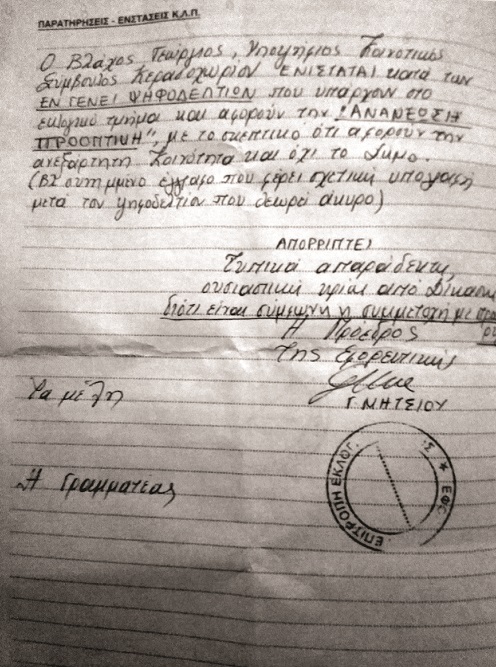 ΠΑΡΑΤΗΡΗΣΕΙΣ - ΕΝΣΤΑΣΕΙΣ Κ.Λ.Π.
Ο Βλάχος Γεώργιος, Υποψήφιος Κοινοτικός
Σύμβουλος Κερασοχωρίου ΕΝΙΣΤΑΤΑΙ κατά των
ΕΝ ΓΕΝΕΙ ΨΗΦΟΔΕΛΤΙΩΝ που υπάρχουν στο
εκλογικό τμήμα και αφορούν την "ΑΝΑΝΕΩΣΗ
ΠΡΟΟΠΤΙΚΗ", με το σκεπτικό ότι αφορούν την
ανεξάρτητη Κοινότητα και όχι το Δήμο.
(Βλ συνημμένο έγγραφο που φέρει σχετική υπογραφή
μετά του ψηφοδελτίου που θεωρεί άκυρο)
ΑΠΟΡΡΙΠΤΕΙ
Τυπικά απαράδεκτη,
ουσιαστική κρίση από
διότι είναι σύμφωνη η συμμετοχή με
Η Πρόεδρος
της Εφορευτικής
Γ. ΜΗΤΣΙΟΥ
Τα μέλη
ΕΠΙΤΡΟΠΗ ΕΚΛΟΓ. Σ ★ ΕΦΟ
Η Γραμματέας